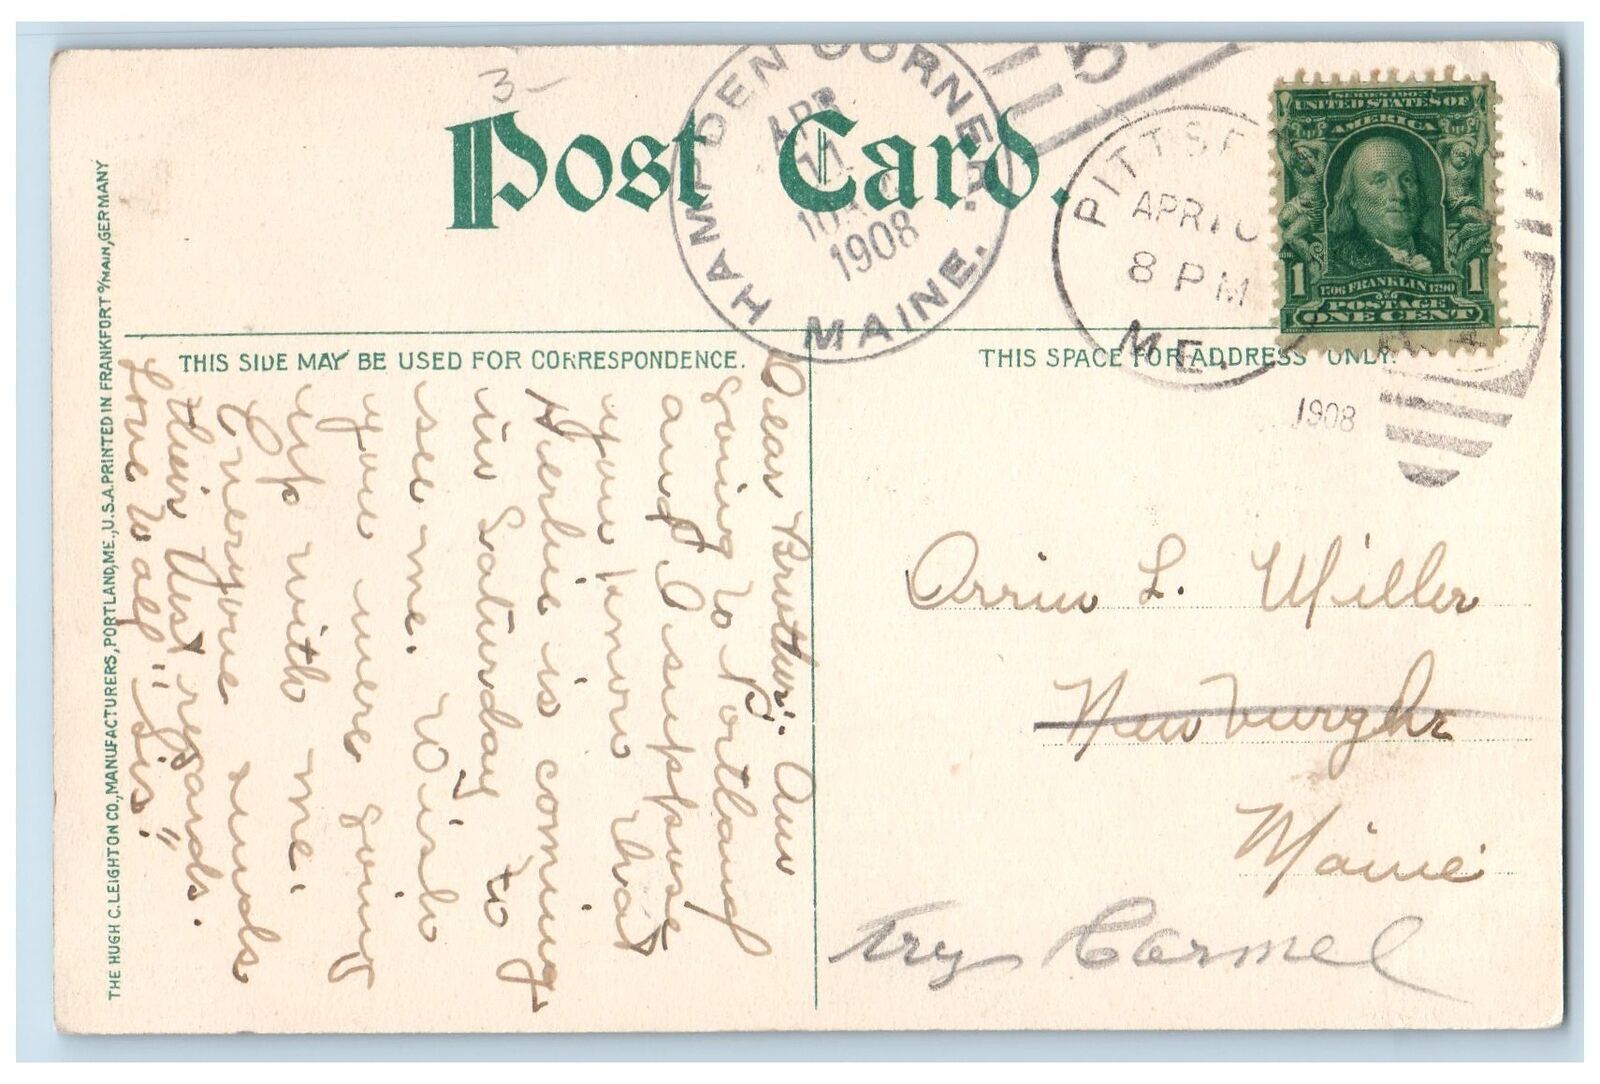 3-
Post Card.
HAMPDEN CORNER.
APR
1908
MAINE.
PITTSF
APR 10
8 PM
ME.
1908
SERIES 1902
UNITED STATES OF
AMERICA
1 1706 FRANKLIN 1790 1
POSTAGE
ONE CENT
THIS SIDE MAY BE USED FOR CORRESPONDENCE.
THIS SPACE FOR ADDRESS ONLY.
THE HUGH C. LEIGHTON CO., MANUFACTURERS, PORTLAND, ME., U.S.A. PRINTED IN FRANKFORT o/MAIN, GERMANY
Dear Brother:. Am
going to Portland
and I suppose
you know that
Herbie is coming
in Saturday to
see me. Wish
you were going
up with me.
Everyone sends
their best regards.
Love to all "Sis"
Orrin L. Miller
Newburgh
Maine
try Carmel